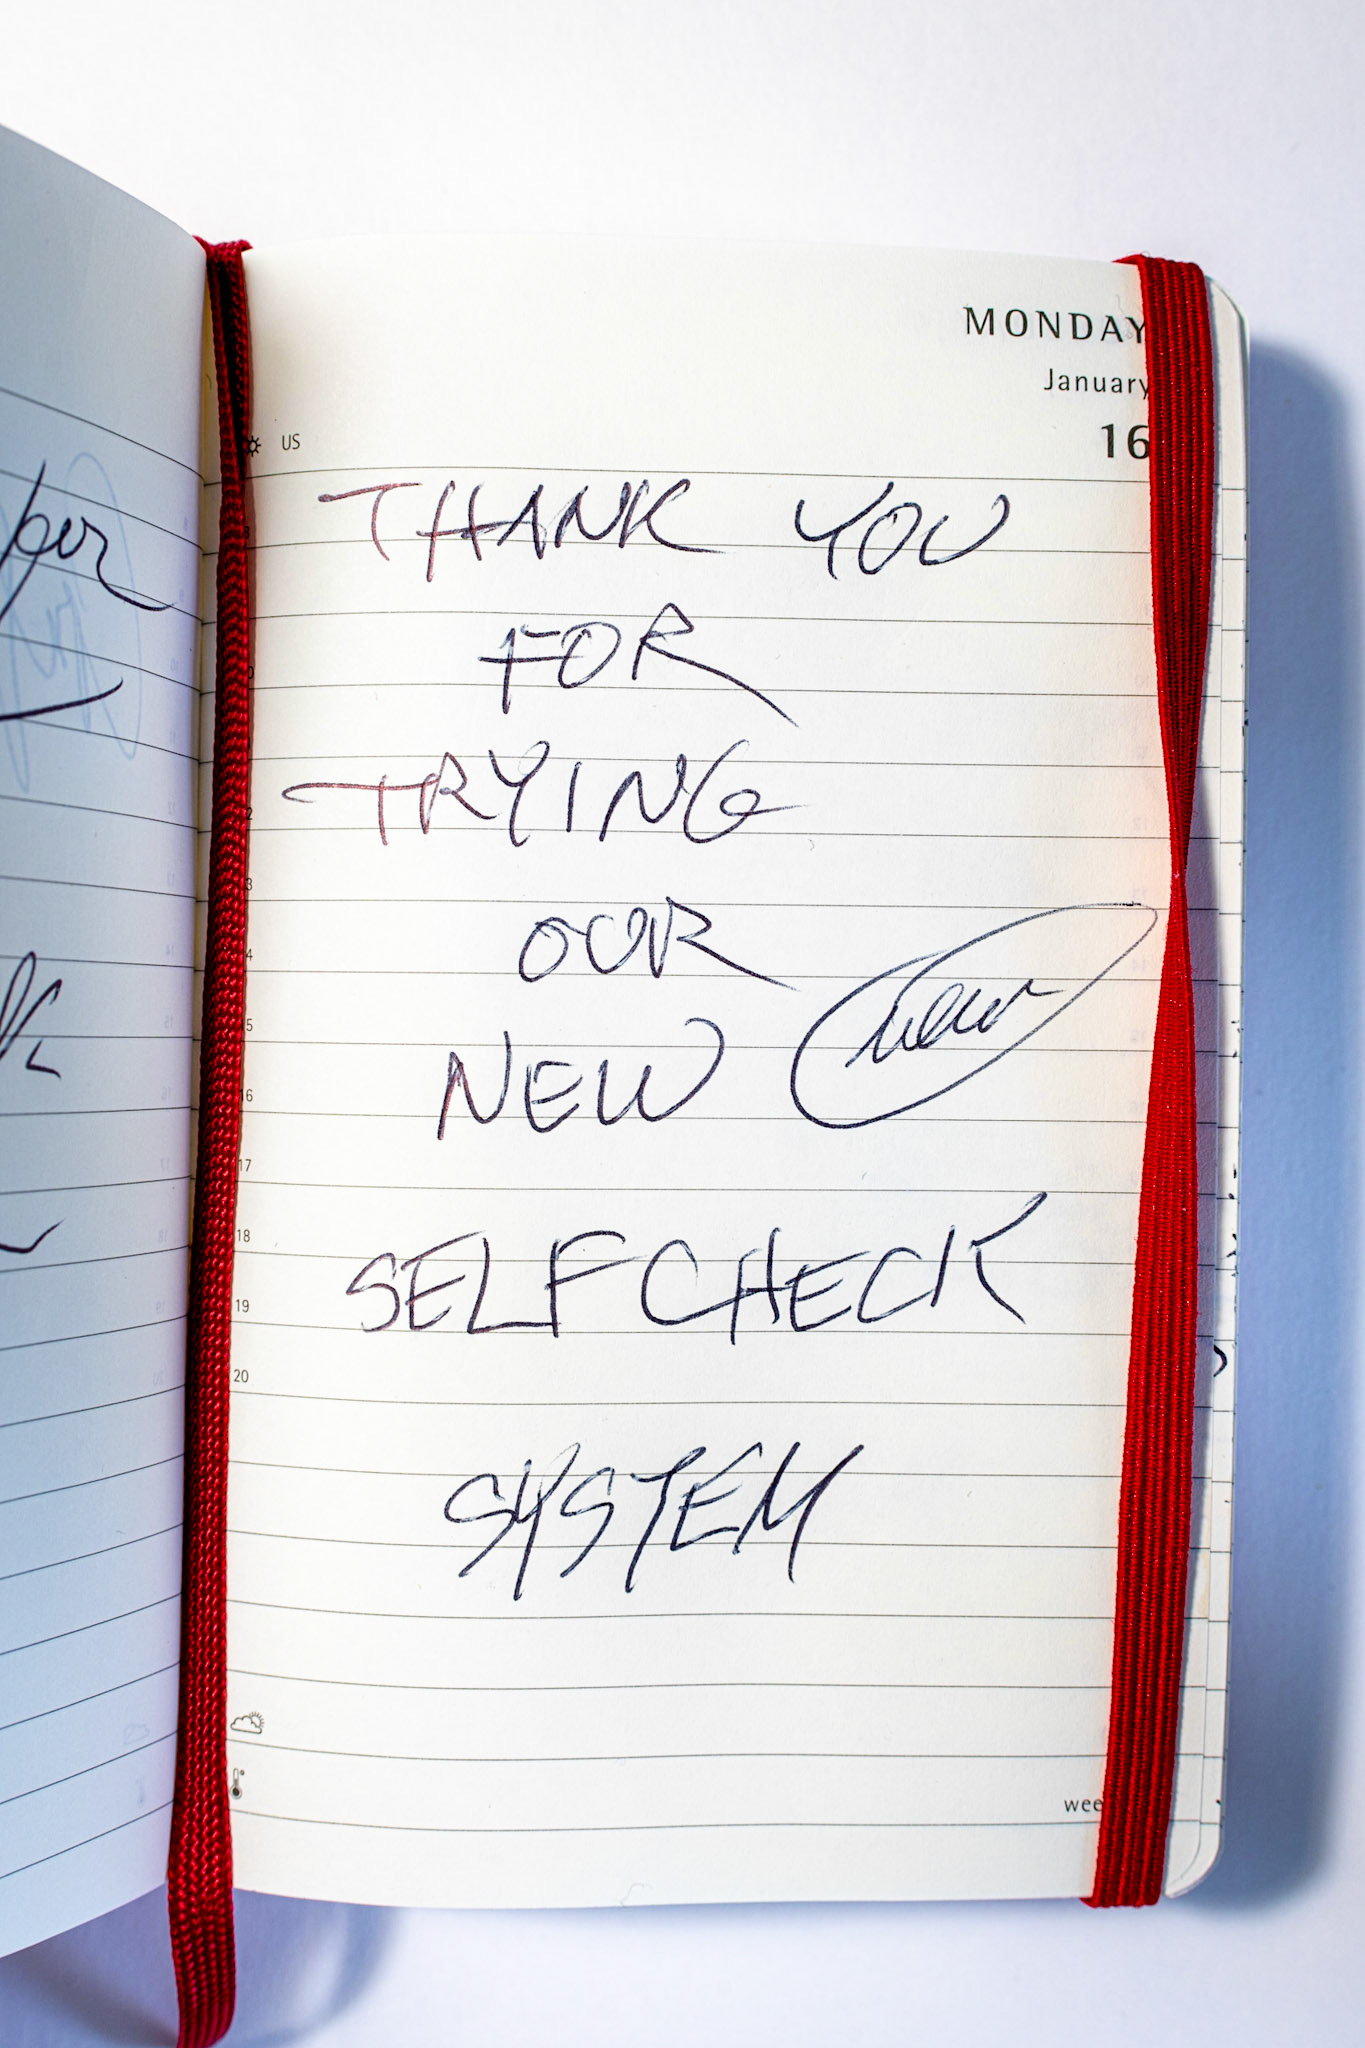 MONDAY
January
16
US
THANK YOU
FOR
TRYING
OUR
NEW
new
SELFCHECK
SYSTEM
per
12
13
14
15
16
17
18
19
20